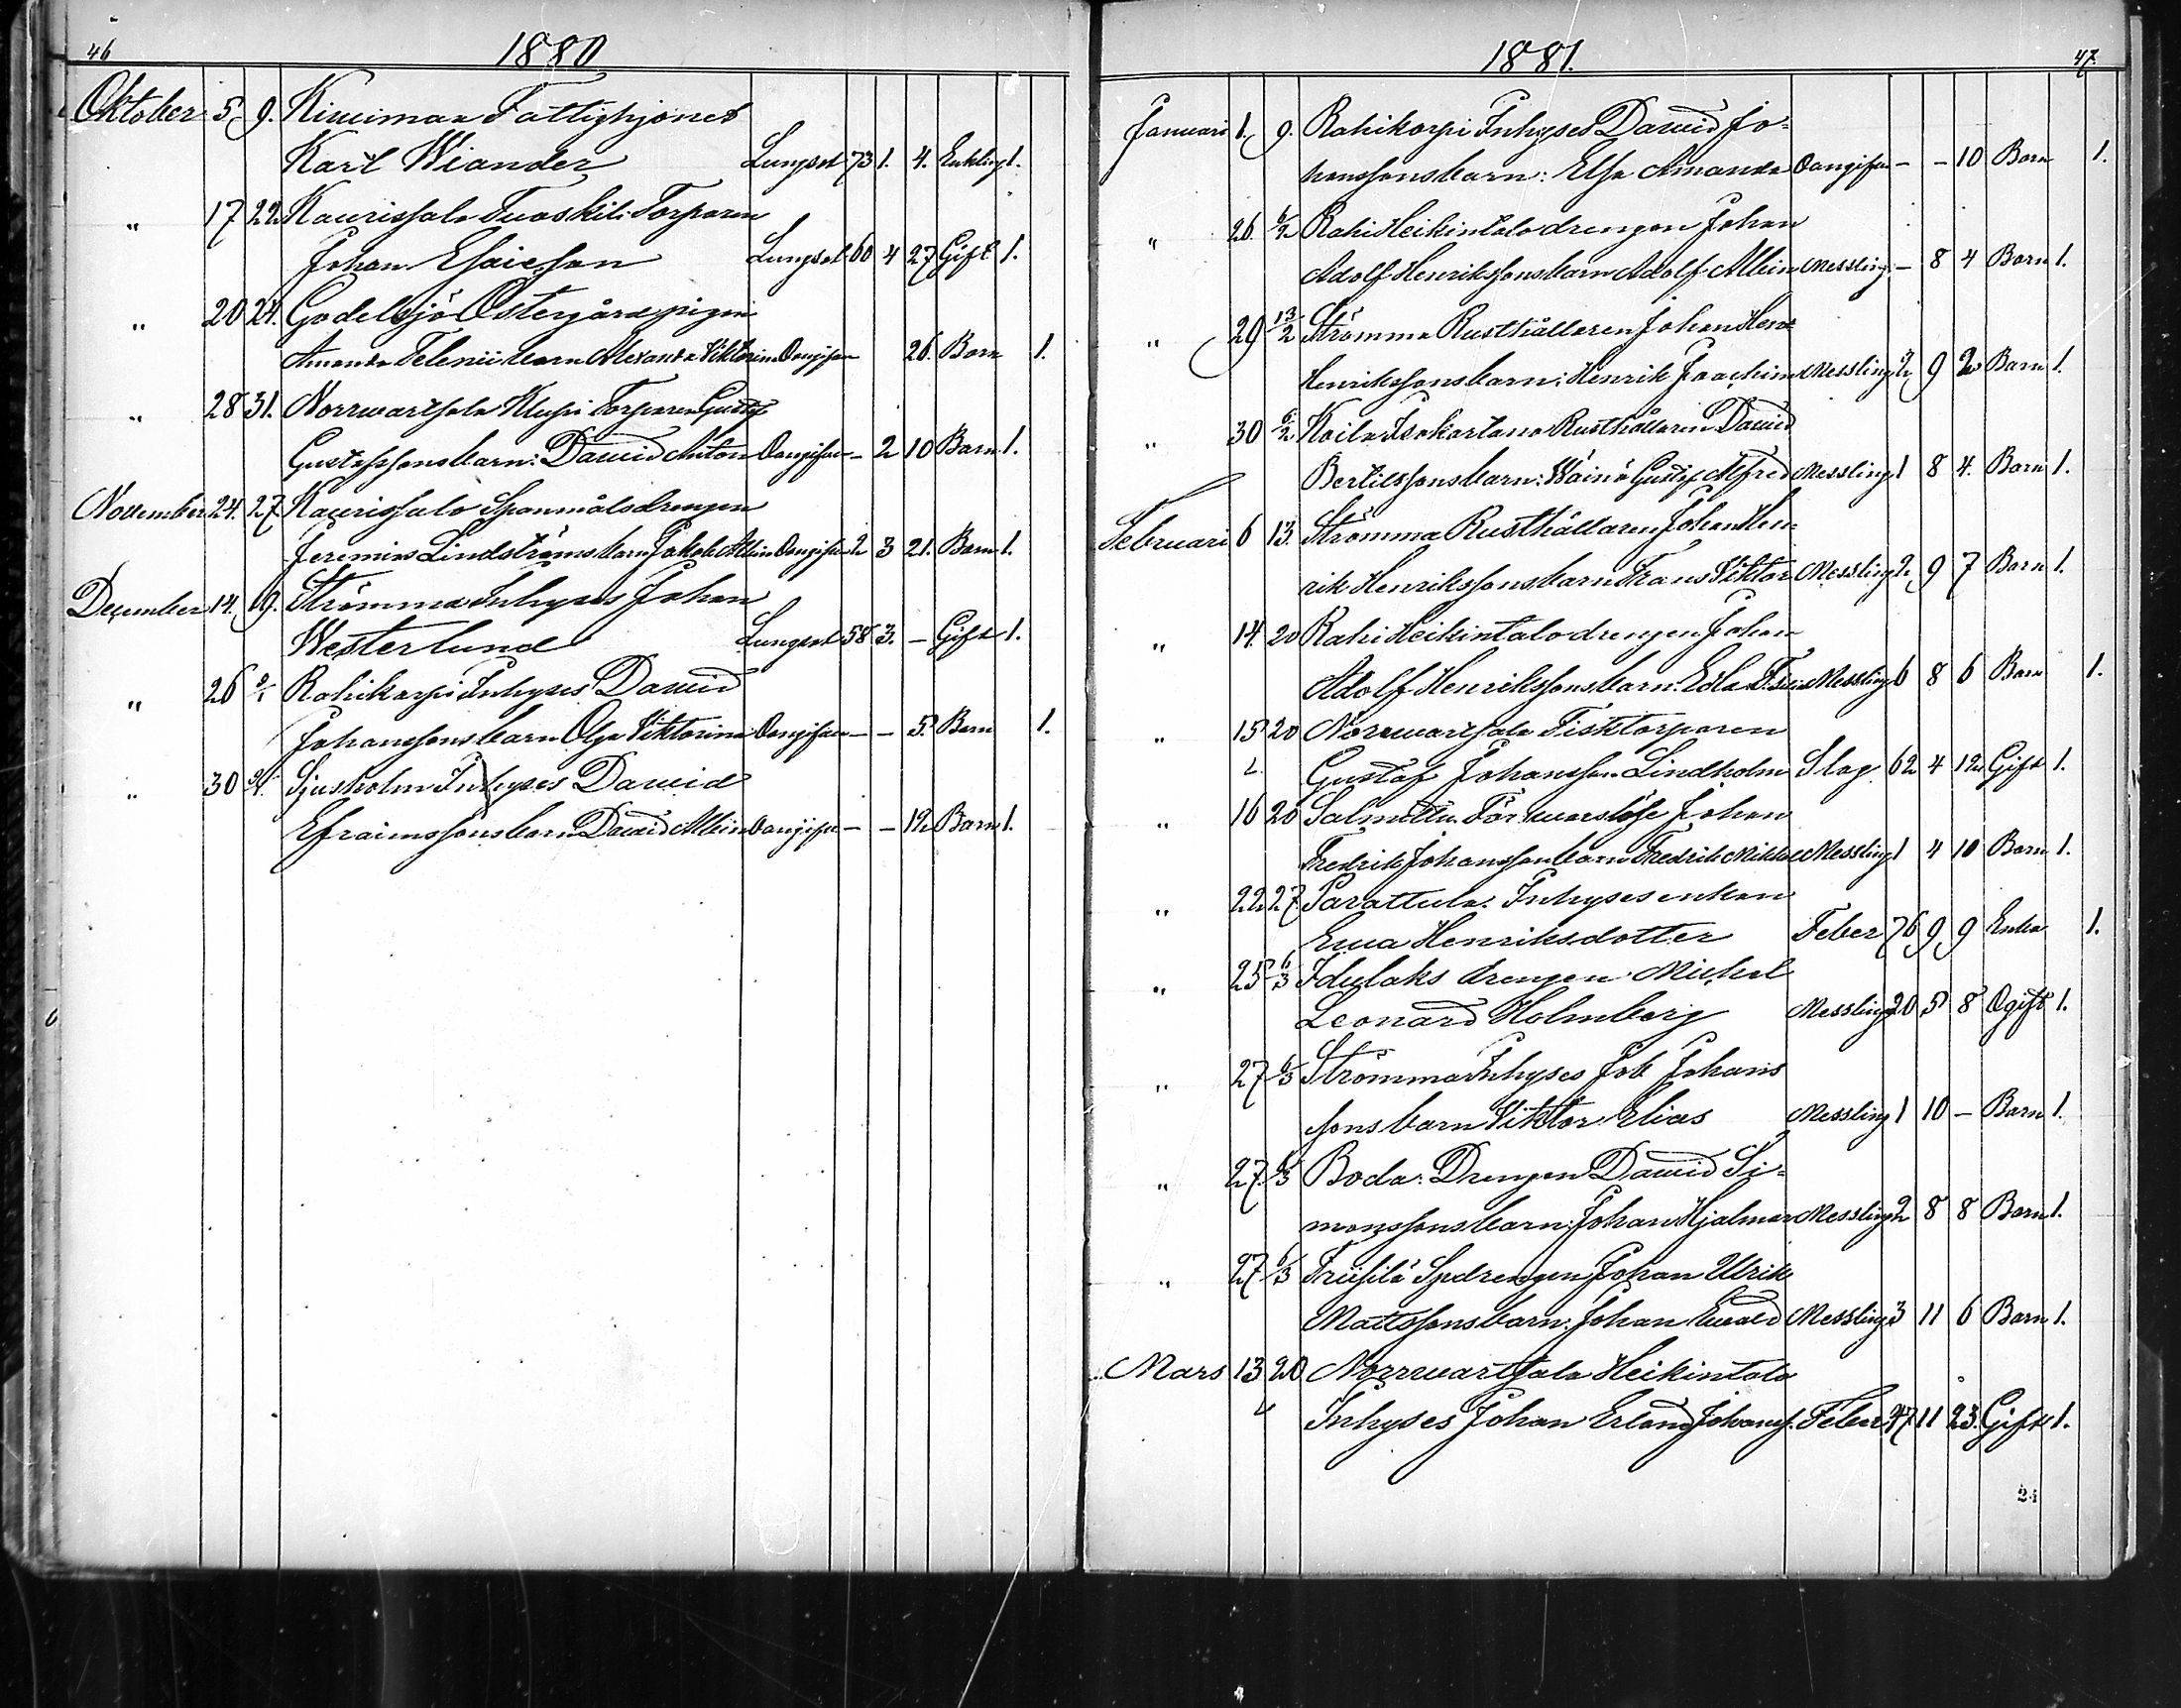 46
1880
Oktober 5 9. Kiviman Fattighjonet
Karl Wiander Lungsot 73 1. 4. Enkling 1.
" 17 22 Kaurissalo Tuoskili Torparen
Johan Esaiesson Lungsot 60 4 27 Gift 1.
" 20 24. Godelsjö Östergårds pigan
Amanda Telenii barn Alexandra Viktorina Oangifven 26. Barn 1.
" 28 31. Norrvartsala Klupi Torparen Gustaf
Gustafssons barn: David Anton Oangifven - 2 10 Barn 1.
November 24. 27 Kaurissalo Spanmålsdrengen
Jeremias Lindströms barn Jakob Albin Oangifven 2 3 21. Barn 1.
December 14. 19. Strömma Inhyses Johan
Westerlund Lungsot 58 3. - Gift 1.
" 26 2/1 Rahikorpi Inhyses David
Johanssons barn Olga Viktorina Oangifven - - 5. Barn 1.
" 30 Sjusholm Inhyses David
Efraimssons barn David Albin Oangifven - - 12 Barn 1.
1881.
47.
Januari 1. 9. Rahikorpi Inhyses David Jo=
hanssons barn: Elsa Amanda Oangifven - - 10 Barn 1.
" 26. 6/2 Rahi Heikintalo drengen Johan
Adolf Henrikssons barn Adolf Albin Messling - 8 4 Barn 1.
" 29 13/2 Strömma Rusthållaren Johan Hen=
Henrikssons barn: Henrik Joachim Messling 2 9 2 Barn 1.
" 30 6/2 Koila Isokartano Rusthållaren David
Bertilssons barn: Wäinö Gustaf Alfred Messling 1 8 4. Barn 1.
Februari 6 13. Strömma Rusthållaren Johan Hen=
rik Henrikssons barn Frans Viktor Messling 2 9 7 Barn 1.
" 14. 20 Rahi Heikintalo drengen Johan
Adolf Henrikssons barn: Edla Messling 6 8 6 Barn 1.
" 15 20 Norrvartsala Fisktorparen
Gustaf Johansson Lindholm Slag 62 4 12 Gift 1.
" 16 20 Salmittu Försvarslöse Johan
Fredrik Johanssons barn Fredrik Mikael Messling 1 4 10 Barn 1.
" 22 27 Parattula Inhyses enkan
Ewa Henriksdotter Feber 76 9 9 Enka 1.
" 25 6/3 Idulaks drengen Mickel
Leonard Holmberg Messling 20 5 8 Ogift 1.
" 27 6/3 Strömma Inhyses Job Johans
sons barn Viktor Elias Messling 1 10 - Barn 1.
" 27. 6/3 Boda: Drengen David Si=
monssons barn: Johan Hjalmar Messling 2 8 8 Barn 1.
" 27 6/3 Friisilä Spdrengen Johan Ulrik
Mattssons barn: Johan Ewald Messling 3 11 6 Barn 1.
Mars 13 20 Norrvartsala Heikintalo
Inhyses Johan Erland Johanss. Feber 47 11 23. Gift 1.
24